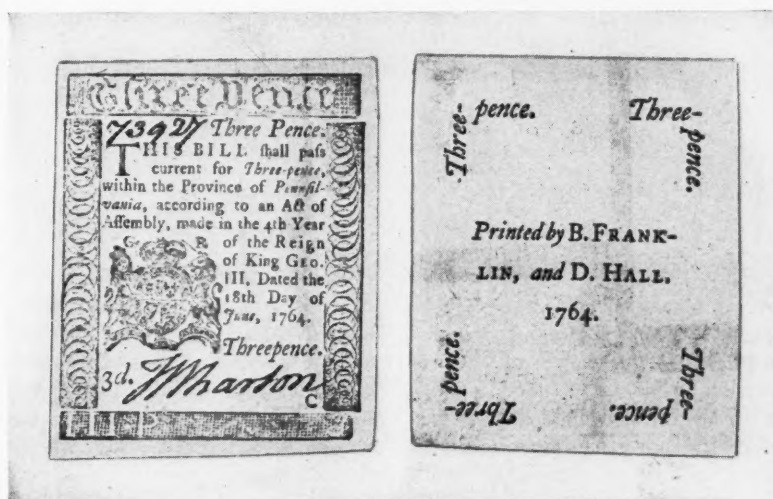 Three Pence
73927 Three Pence.
THIS BILL shall pass
current for Three-pence,
within the Province of Pennsil-
vania, according to an Act of
Assembly, made in the 4th Year
G. R. of the Reign
of King GEO.
III. Dated the
18th Day of
June, 1764.
Threepence.
3d. Wharton
C
Three-pence.
Three-
pence.
Printed by B. FRANK-
LIN, and D. HALL.
1764.
Three-
pence.
Three-
pence.